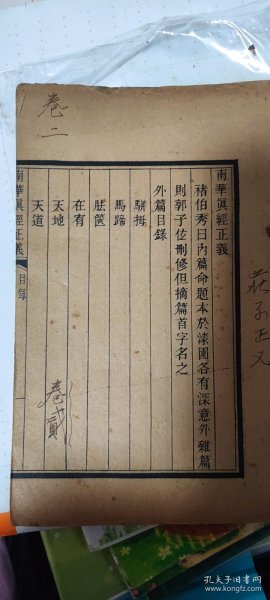 卷二
莊子正义
南華真經正義
褚伯秀曰內篇命題本於漆園各有深意外雜篇
則郭子伭刪修但摘篇首字名之
外篇目錄
駢拇
馬蹄
胠篋
在宥
天地
天道
南華真經正義
目錄
一
卷貳
孔夫子旧书网